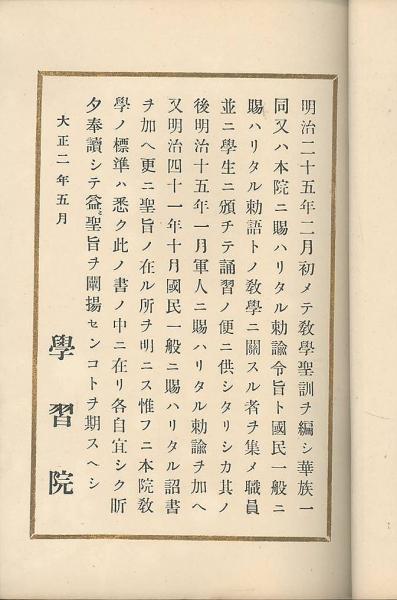 明治二十五年二月初メテ教學聖訓ヲ編シ華族一
同又ハ本院ニ賜ハリタル勅諭令旨ト國民一般ニ
賜ハリタル勅語トノ教學ニ關スル者ヲ集メ職員
並ニ學生ニ頒チテ誦習ノ便ニ供シタリシカ其ノ
後明治十五年一月軍人ニ賜ハリタル勅諭ヲ加ヘ
又明治四十一年十月國民一般ニ賜ハリタル詔書
ヲ加ヘ更ニ聖旨ノ在ル所ヲ明ニス惟フニ本院教
學ノ標準ハ悉ク此ノ書ノ中ニ在リ各自宜シク昕
夕奉讀シテ益〻聖旨ヲ闡揚センコトヲ期スヘシ
大正二年五月
學習院